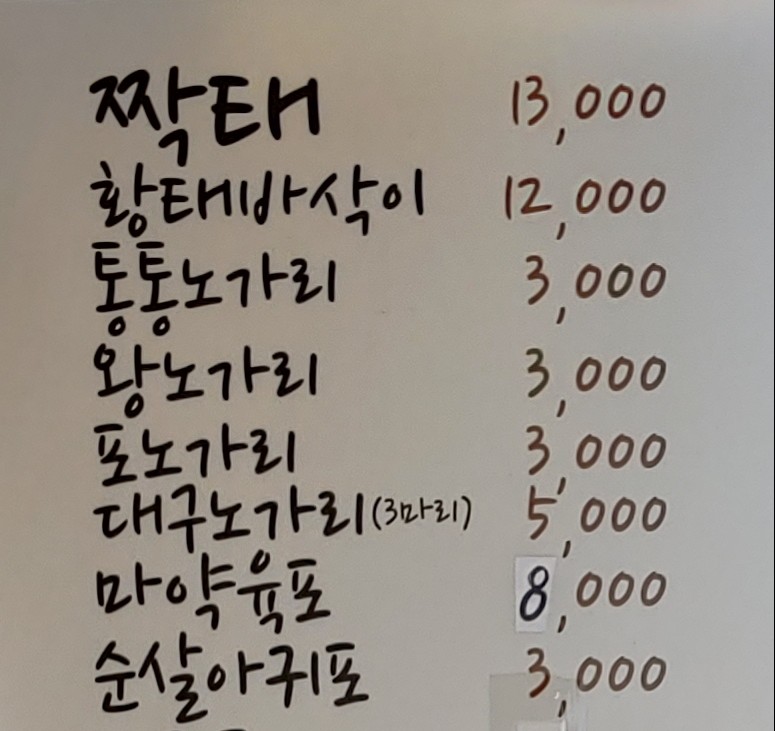 짝태 13,000
황태바삭이 12,000
통통노가리 3,000
왕노가리 3,000
포노가리 3,000
대구노가리(3마리) 5,000
마약육포 8,000
순살아귀포 3,000